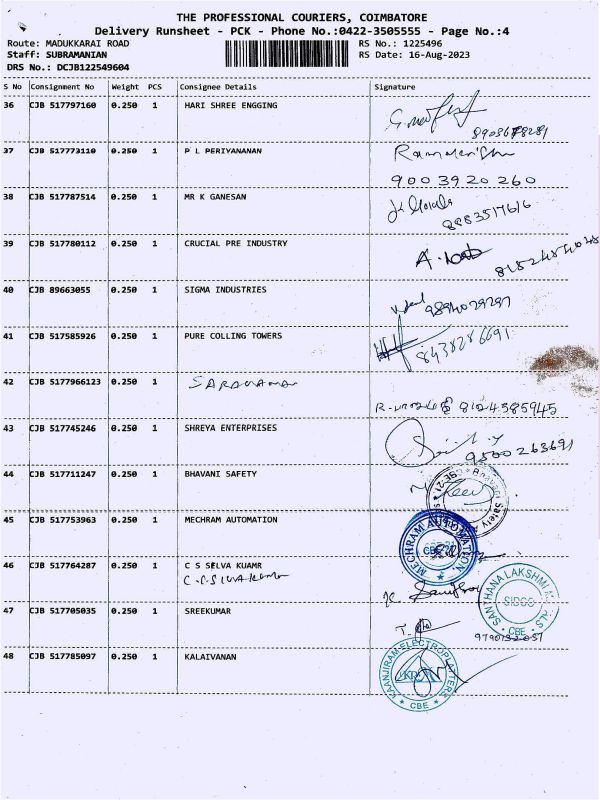 THE PROFESSIONAL COURIERS, COIMBATORE
Delivery Runsheet - PCK - Phone No.:0422-3505555 - Page No.:4
Route: MADUKKARAI ROAD RS No.: 1225496
Staff: SUBRAMANIAN RS Date: 16-Aug-2023
DRS No.: DCJB122549604
S No Consignment No Weight PCS Consignee Details Signature
36 CJB 517797160 0.250 1 HARI SHREE ENGGING
37 CJB 517773110 0.250 1 P L PERIYANANAN
9003920260
38 CJB 517787514 0.250 1 MR K GANESAN
8883517616
39 CJB 517780112 0.250 1 CRUCIAL PRE INDUSTRY
40 CJB 89663055 0.250 1 SIGMA INDUSTRIES
41 CJB 517585926 0.250 1 PURE COLLING TOWERS
8438286691
42 CJB 5177966123 0.250 1 SARAVANAN
8124585945
43 CJB 517745246 0.250 1 SHREYA ENTERPRISES
9500263691
44 CJB 517711247 0.250 1 BHAVANI SAFETY
Bhavani Safety
45 CJB 517753963 0.250 1 MECHRAM AUTOMATION
MECHRAM AUTOMATION
CBE-21
46 CJB 517764287 0.250 1 C S SELVA KUAMR
SANTHANA LAKSHMI
SIDCO
CBE
47 CJB 517705035 0.250 1 SREEKUMAR
48 CJB 517785097 0.250 1 KALAIVANAN
KAANJIRAM ELECTROPLATTERS
CBE